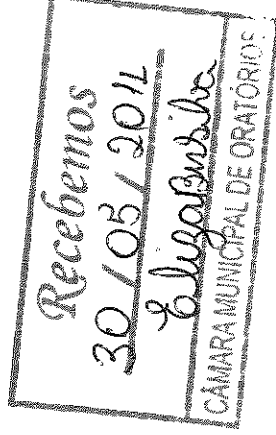 Recebemos
30 / 05 / 2014
CÂMARA MUNICIPAL DE ORATÓRIOS